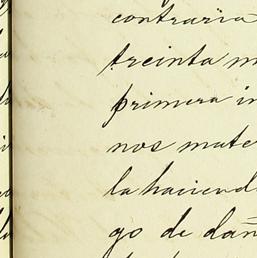 contraria
treinta m
primera in
nos mate
la haciend
go de dañ